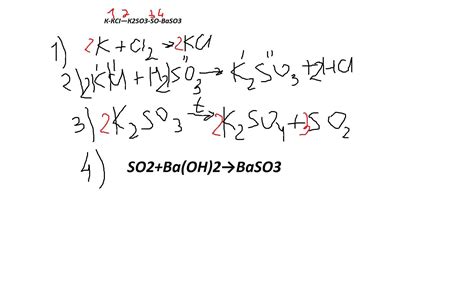 1 2 3 4
K-KCl—K2SO3-SO-BaSO3
1) 2K + Cl2 → 2KCl
2) 2KCl + H2SO3 → K2SO3 + 2HCl
3) 2K2SO3 t→ 2K2SO4 + 3SO2
4) SO2+Ba(OH)2→BaSO3